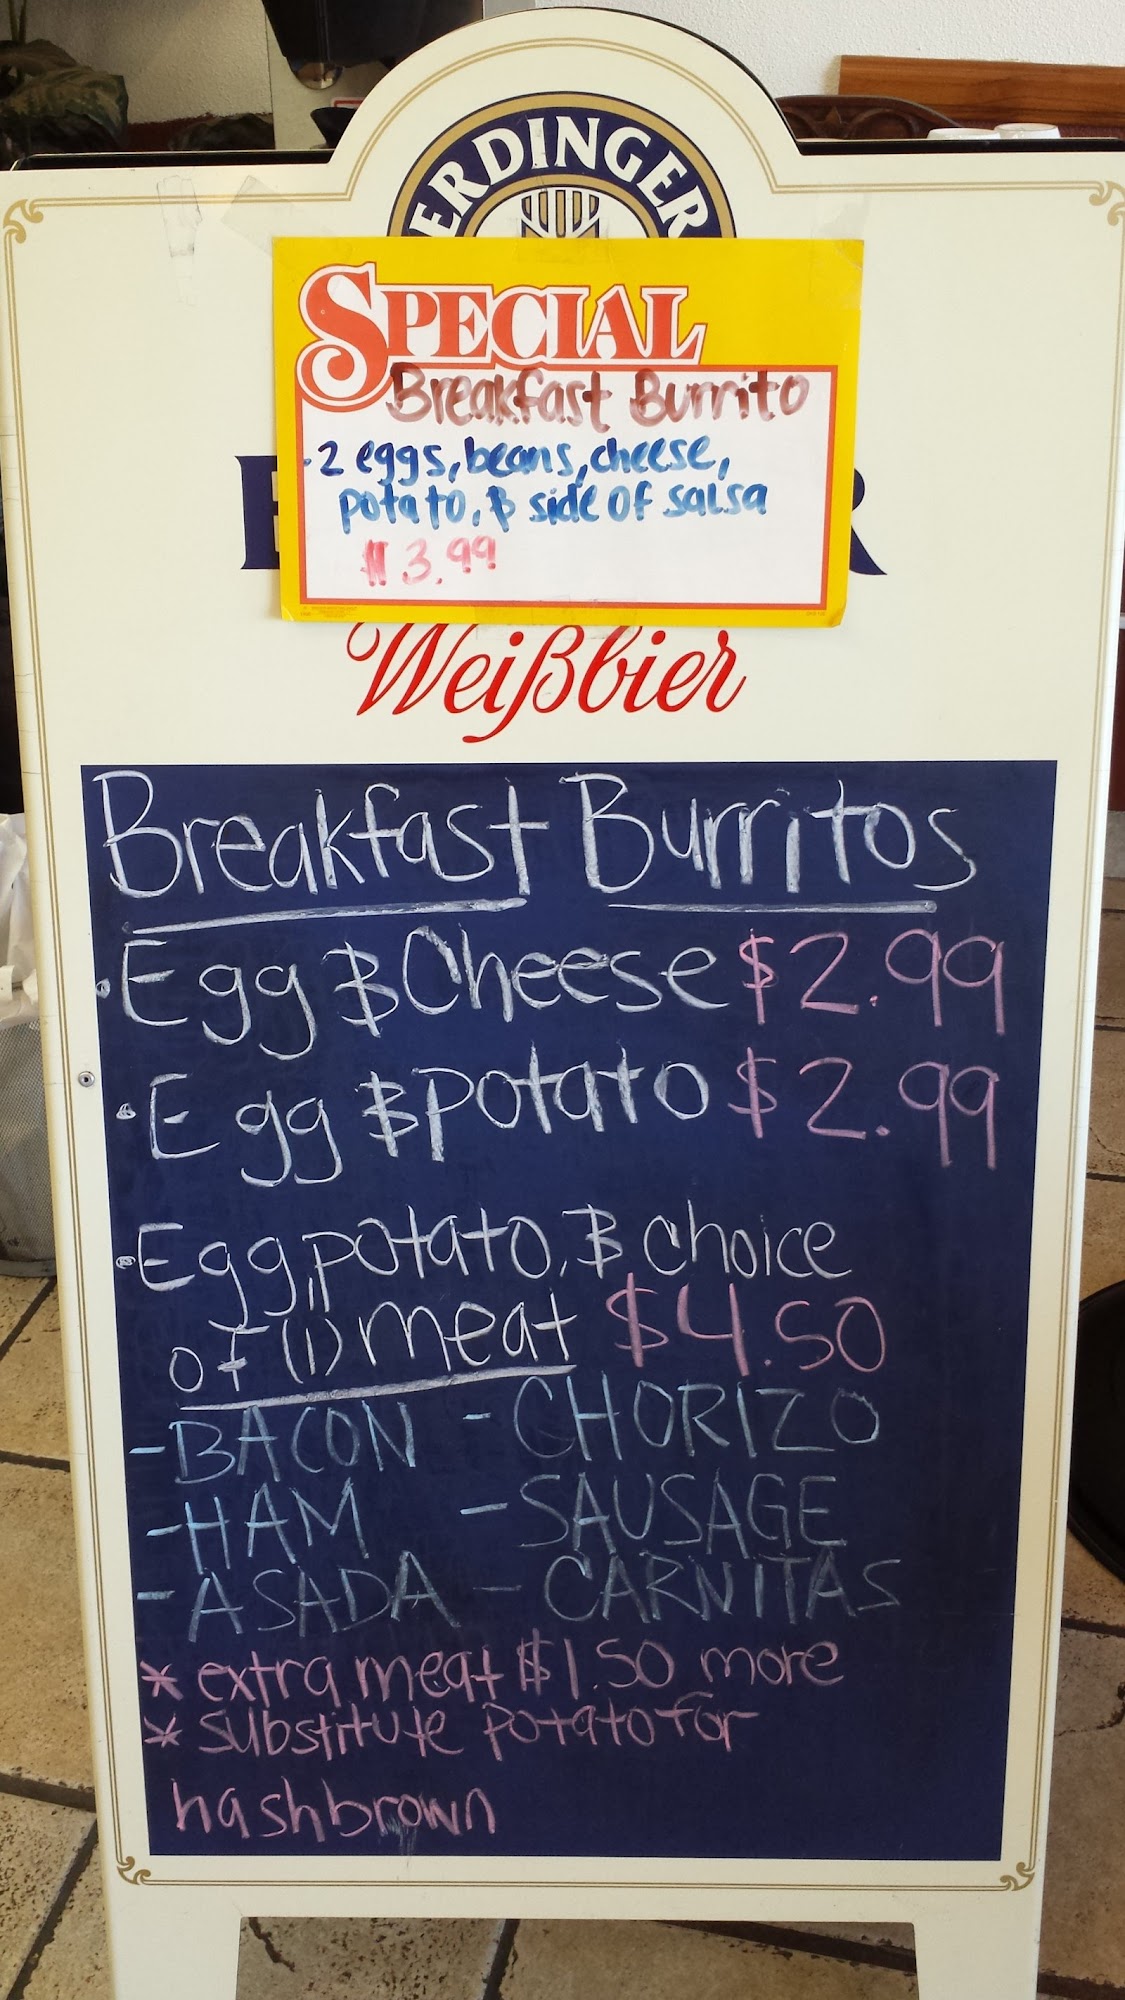 ERDINGER
SPECIAL
Breakfast Burrito
• 2 eggs, beans, cheese,
potato, & side of salsa
$3.99
Weißbier
Breakfast Burritos
• Egg & Cheese $2.99
• Egg & potato $2.99
• Egg, potato, & choice
of (1) meat $4.50
- BACON - CHORIZO
- HAM - SAUSAGE
- ASADA - CARNITAS
* extra meat $1.50 more
* substitute potato for
hashbrown